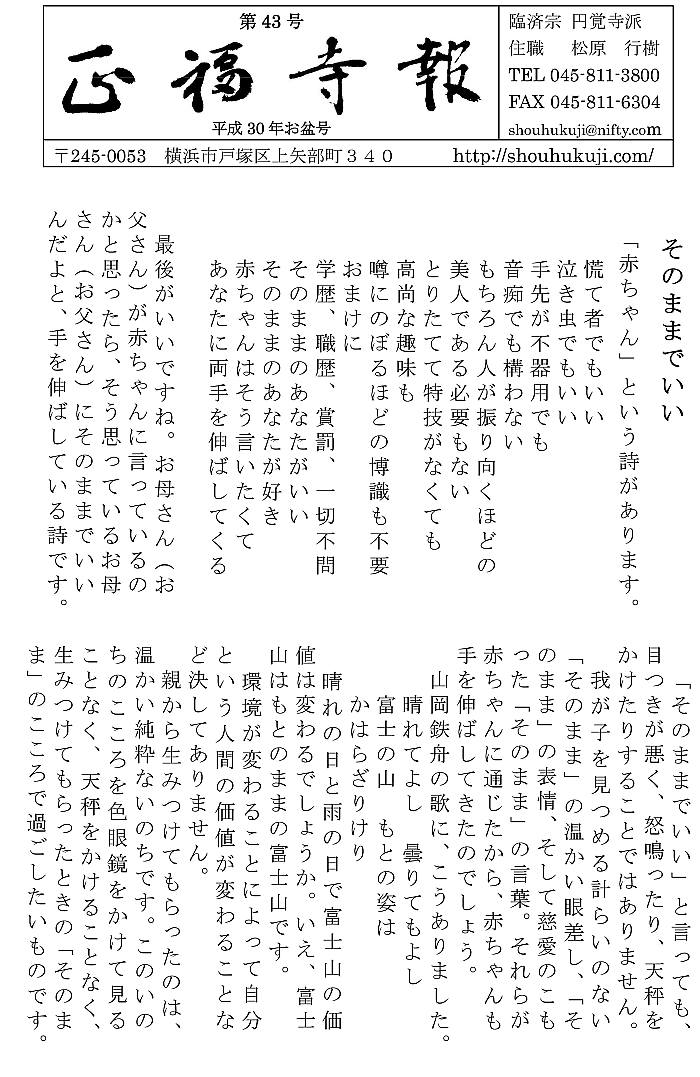 第43号
正福寺報
平成30年お盆号
臨済宗 円覚寺派
住職 松原 行樹
TEL 045-811-3800
FAX 045-811-6304
shouhukuji@nifty.com
〒245-0053 横浜市戸塚区上矢部町340 http://shouhukuji.com/
そのままでいい
「赤ちゃん」という詩があります。
慌て者でもいい
泣き虫でもいい
手先が不器用でも
音痴でも構わない
もちろん人が振り向くほどの
美人である必要もない
とりたてて特技がなくても
高尚な趣味も
噂にのぼるほどの博識も不要
おまけに
学歴、職歴、賞罰、一切不問
そのままのあなたがいい
そのままのあなたが好き
赤ちゃんはそう言いたくて
あなたに両手を伸ばしてくる
最後がいいですね。お母さん（お
父さん）が赤ちゃんに言っているの
かと思ったら、そう思っているお母
さん（お父さん）にそのままでいい
んだよと、手を伸ばしている詩です。
「そのままでいい」と言っても、
目つきが悪く、怒鳴ったり、天秤を
かけたりすることではありません。
我が子を見つめる計らいのない
「そのまま」の温かい眼差し、「そ
のまま」の表情、そして慈愛のこも
った「そのまま」の言葉。それらが
赤ちゃんに通じたから、赤ちゃんも
手を伸ばしてきたのでしょう。
山岡鉄舟の歌に、こうありました。
晴れてよし 曇りてもよし
富士の山 もとの姿は
かはらざりけり
晴れの日と雨の日で富士山の価
値は変わるでしょうか。いえ、富士
山はもとのままの富士山です。
環境が変わることによって自分
という人間の価値が変わることな
ど決してありません。
親から生みつけてもらったのは、
温かい純粋ないのちです。このいの
ちのこころを色眼鏡をかけて見る
ことなく、天秤をかけることなく、
生みつけてもらったときの「そのま
ま」のこころで過ごしたいものです。